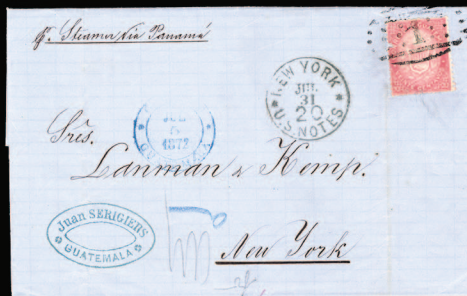 pr. Steamer via Panamá
1
NEW YORK
JUL
31
20
U.S. NOTES
JUL
1872
GUATEMALA
Srẽs.
Lanman & Kemp.
Juan SERIGIERS
GUATEMALA
New York